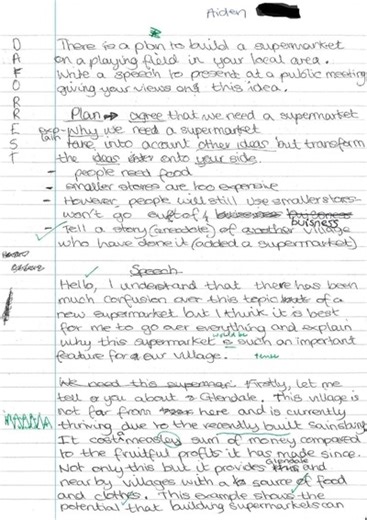 Aiden
There is a plan to build a supermarket
on a playing field in your local area.
Write a speech to present at a public meeting
giving your views on this idea.
D
A
F
O
R
R
E
S
T
Plan → agree that we need a supermarket
explain why we need a supermarket
take into account other ideas but transform
the ideas onto your side.
- people need food
- smaller stores are too expensive
- However, people will still use smaller stores-
won't go out of buisness
- Tell a story (anecdote) of another village
who have done it (added a supermarket)
Speech
Hello, I understand that there has been
much confusion over this topic of a
new supermarket but I think it is best
for me to go over everything and explain
why this supermarket is would be such an important
feature for our village. tense
Firstly, let me
tell you about Glendale. This village is
not far from here and is currently
thriving due to the recently built Sainsburys
It cost measley sum of money compared
to the fruitful profits it has made since.
Not only this but it provides Glendale and
nearby villages with a source of food
and clothes. This example shows the
potential that building supermarkets can